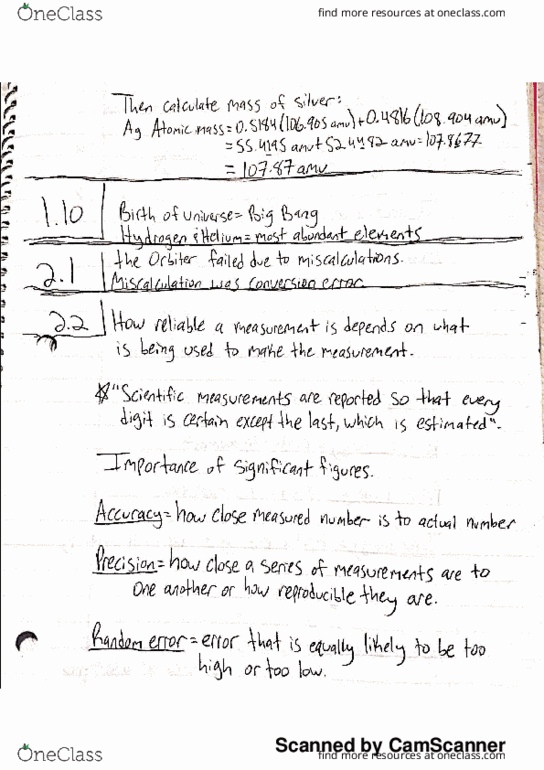 OneClass
find more resources at oneclass.com
Then calculate mass of silver:
Ag Atomic mass = 0.5184(106.905 amu) + 0.4816(108.904 amu)
= 55.4195 amu + 52.4482 amu = 107.8677
= 107.87 amu
1.10
Birth of Universe = Big Bang
Hydrogen & Helium = most abundant elements
2.1
the Orbiter failed due to miscalculations.
Miscalculation was conversion error
2.2
How reliable a measurement is depends on what
is being used to make the measurement.
"Scientific measurements are reported so that every
digit is certain except the last, which is estimated".
Importance of significant figures.
Accuracy = how close measured number is to actual number
Precision = how close a series of measurements are to
one another or how reproducible they are.
Random error = error that is equally likely to be too
high or too low.
Scanned by CamScanner
OneClass
find more resources at oneclass.com